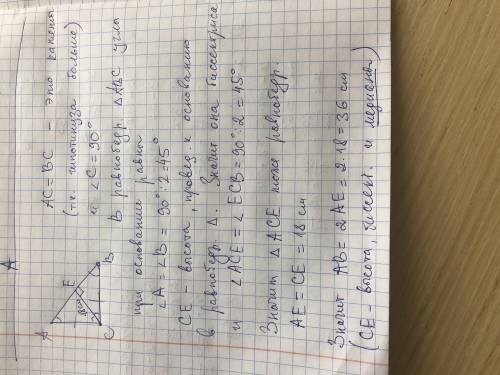 A
A
E
18см
C
B
AC = BC - это катеты
(т.к. гипотенуза больше)
и ∠C = 90°
В равнобедр. △ABC углы
при основании равны
∠A = ∠B = 90° : 2 = 45°
CE - высота, провед. к основанию
в равнобедр. △. Значит она биссектриса
и ∠ACE = ∠ECB = 90° : 2 = 45°
Значит △ACE тоже равнобедр.
AE = CE = 18 см
Значит AB = 2AE = 2·18 = 36 см
(CE - высота, биссект. и медиана)